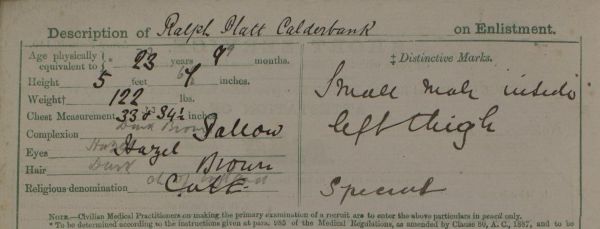 Description of Ralph Platt Calderbank on Enlistment.
Age physically equivalent to } 23 years 9 months.
Height 5 feet inches.
Weight† 122 lbs.
Chest Measurement 33 & 34½ inches
Complexion Sallow
Eyes Hazel
Hair Dark Brown
Religious denomination
‡ Distinctive Marks.
Small mole inside
left thigh
Special
NOTE.—Civilian Medical Practitioners on making the primary examination of a recruit are to enter the above particulars in pencil only.
* To be determined according to the instructions given at para. 985 of the Medical Regulations, as amended by Clause 80, A. C., 1887, and to be